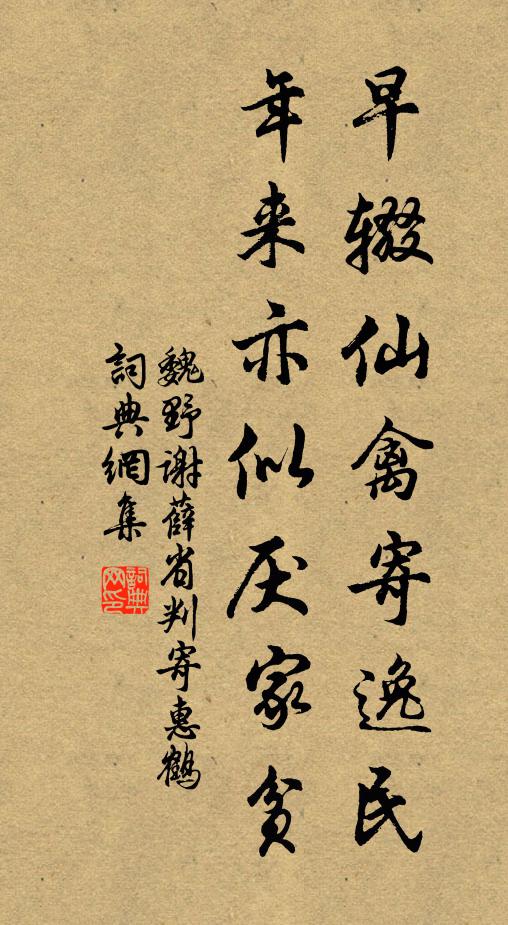 早辍仙禽寄逸民
年来亦似厌家贫
魏野謝薛省判寄惠鶴
詞典網集
詞典
网印